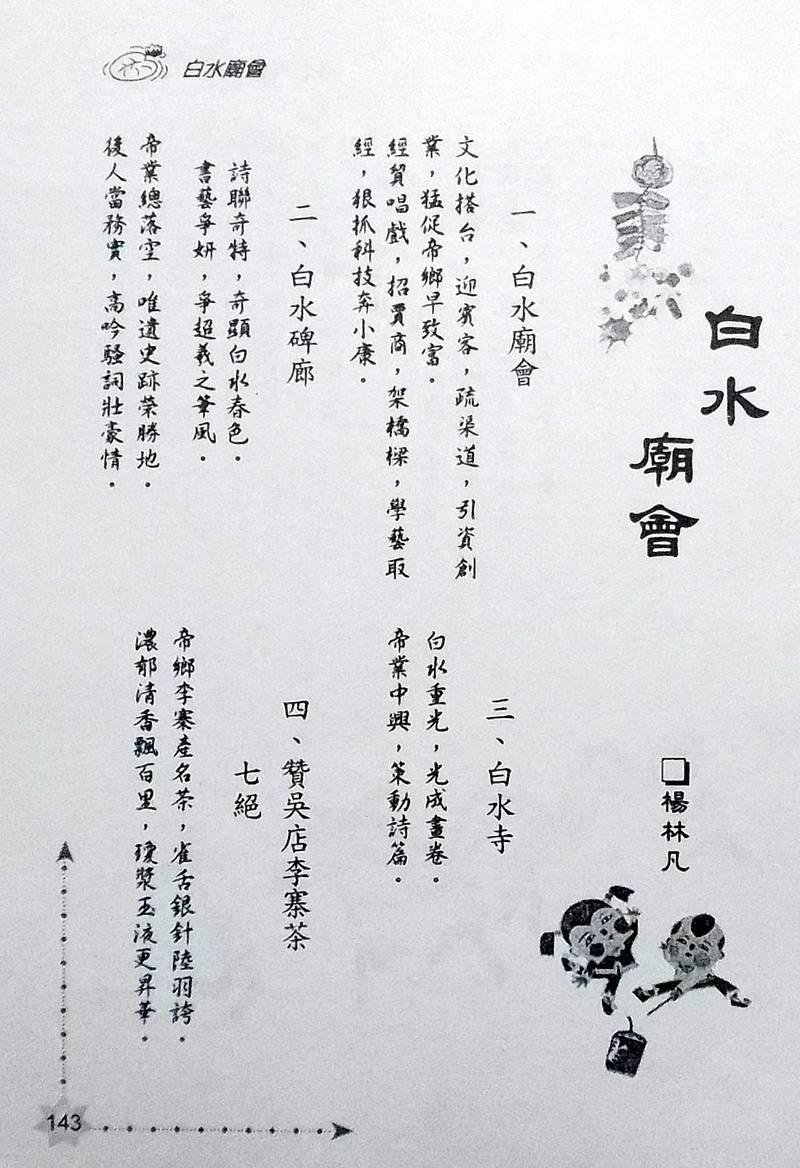 白水廟會
白水
廟會
□楊林凡
一、白水廟會
文化搭台，迎賓客，疏渠道，引資創
業，猛促帝鄉早致富。
經貿唱戲，招賈商，架橋樑，學藝取
經，狠抓科技奔小康。
二、白水碑廊
詩聯奇特，奇顯白水春色。
書藝爭妍，爭超羲之筆風。
帝業總落空，唯遺史跡榮勝地。
後人當務實，高吟騷詞壯豪情。
三、白水寺
白水重光，光成畫卷。
帝業中興，策動詩篇。
四、贊吳店李寨茶
七絕
帝鄉李寨產名茶，雀舌銀針陸羽誇。
濃郁清香飄百里，瓊漿玉液更昇華。
143